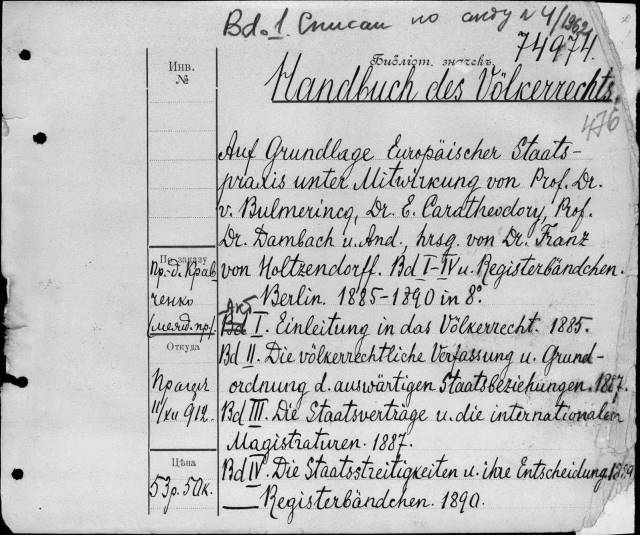 Bd. 1. Списан по акту № 4/1962
74974.
Библіот. значекъ
Handbuch des Völkerrechts.
476
Инв.
№
Auf Grundlage Europäischer Staats-
praxis unter Mitwirkung von Prof. Dr.
v. Bulmerincq, Dr. E. Caratheodory, Prof.
Dr. Dambach u. And., hrsg. von Dr. Franz
von Holtzendorff. Bd I-IV u. Registerbändchen.
Berlin. 1885-1890 in 8°.
По заказу
Пр.-д. Крав
ченко
(межд. пр.)
Акт
Bd I. Einleitung in das Völkerrecht. 1885.
Bd II. Die völkerrechtliche Verfassung u. Grund-
ordnung d. auswärtigen Staatsbeziehungen. 1887.
Bd III. Die Staatsverträge u. die internationalen
Magistraturen. 1887.
Bd IV. Die Staatsstreitigkeiten u. ihre Entscheidung. 1889
— Registerbändchen. 1890.
Откуда
11/XII 912.
Цѣна
53р. 50к.